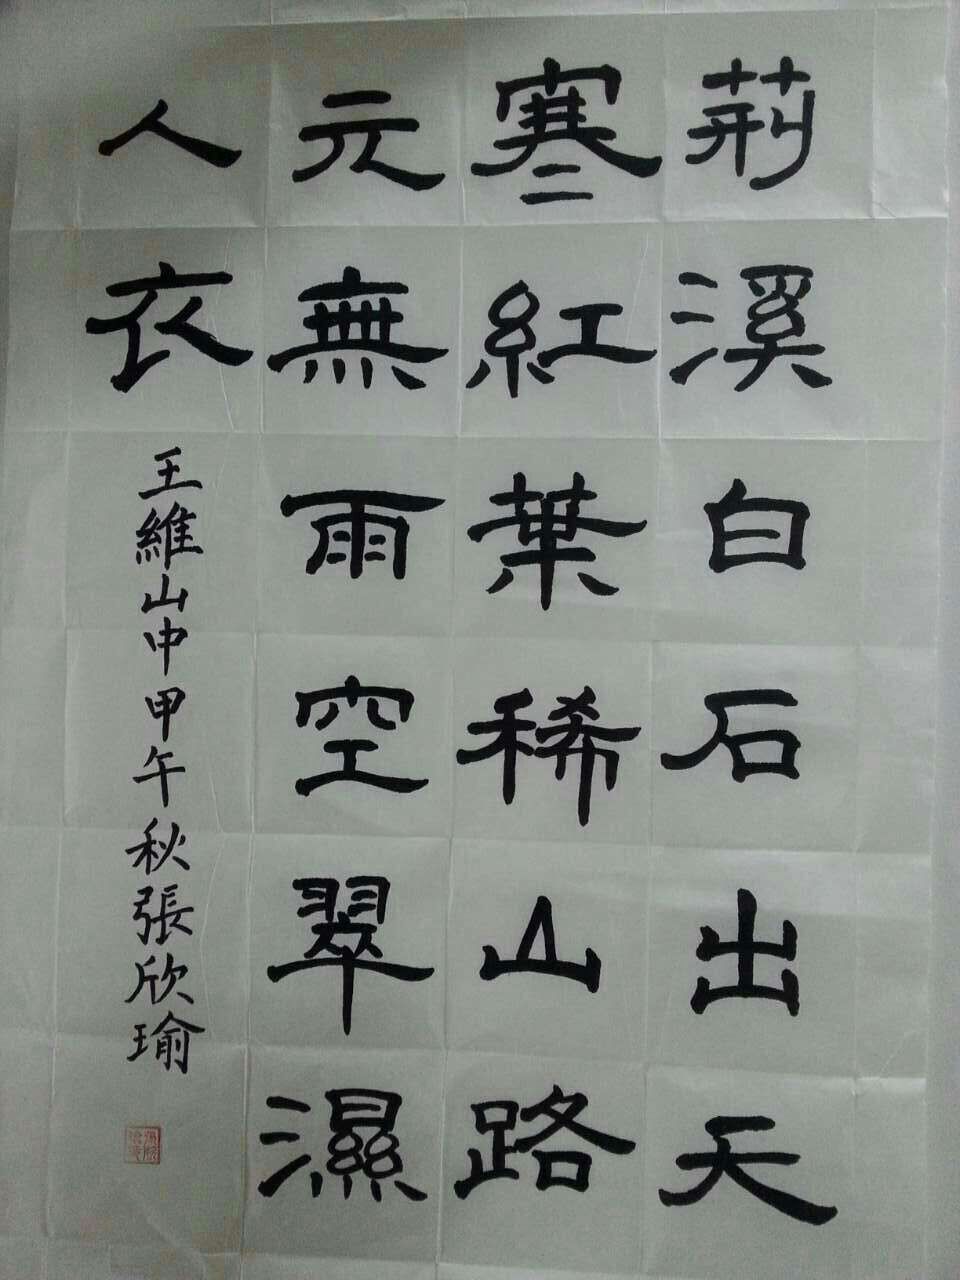 荊溪白石出天
寒紅葉稀山路
元無雨空翠濕
人衣
王維山中甲午秋張欣瑜